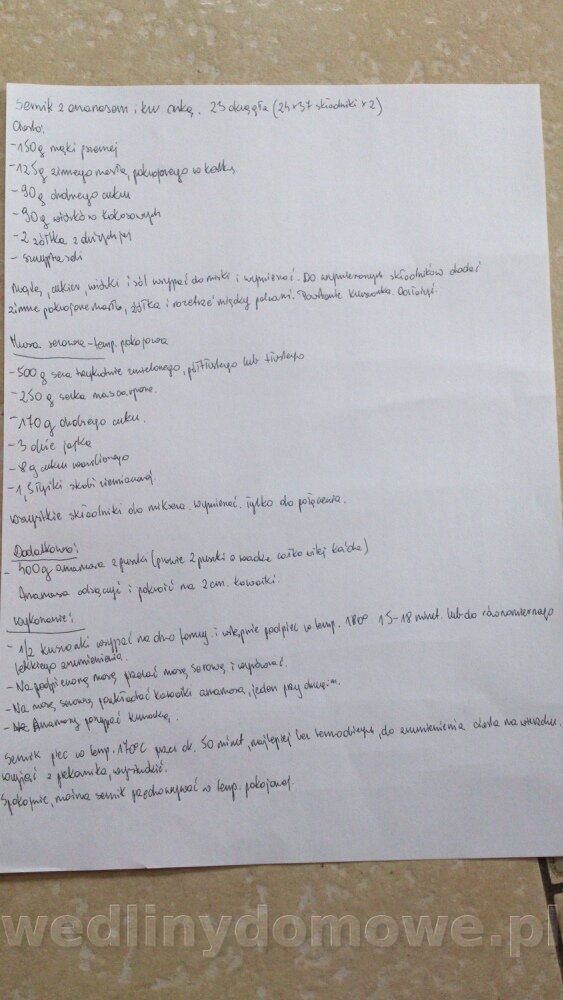 Sernik z ananasem i kruszonką. 23 okrągła (24x37 składniki x2)
Ciasto:
-150g mąki pszennej
-125g zimnego masła, pokrojonego w kostkę
-90g drobnego cukru
-90g wiórków kokosowych
-2 żółtka z dużych jaj
- szczypta soli
Mąkę, cukier, wiórki i sól wsypać do miski i wymieszać. Do wymieszanych składników dodać
zimne pokrojone masło, żółtka i rozetrzeć między palcami. Powstanie kruszonka.
Masa serowa - temp. pokojowa
-500g sera trzykrotnie zmielonego, półtłustego lub tłustego
-250g serka mascarpone.
-170g drobnego cukru.
-3 duże jajka
-8g cukru waniliowego
-1,5 łyżki skrobi ziemniaczanej.
Wszystkie składniki do miksera. Wymieszać tylko do połączenia.
Dodatkowo:
- 500g ananasa z puszki (prawie 2 puszki o wadze każda)
Ananasa odsączyć i pokroić na 2cm. kawałki.
Wykonanie:
- 1/2 kruszonki wsypać na dno formy i wstępnie podpiec w temp. 180° 15-18 minut. lub do równomiernego
lekkiego zrumienienia.
- Na podpieczoną masę przelać masę serową i wyrównać.
- Na masę serową poukładać kawałki ananasa, jeden przy drugim.
- Ananasy posypać kruszonką.
Sernik piec w temp. 170°C przez ok. 50 minut, najlepiej bez termoobiegu, do zrumienienia ciasta na wierzchu.
Wyjąć z piekarnika, wystudzić.
Spokojnie, można sernik przechowywać w temp. pokojowej.
wedlinydomowe.pl